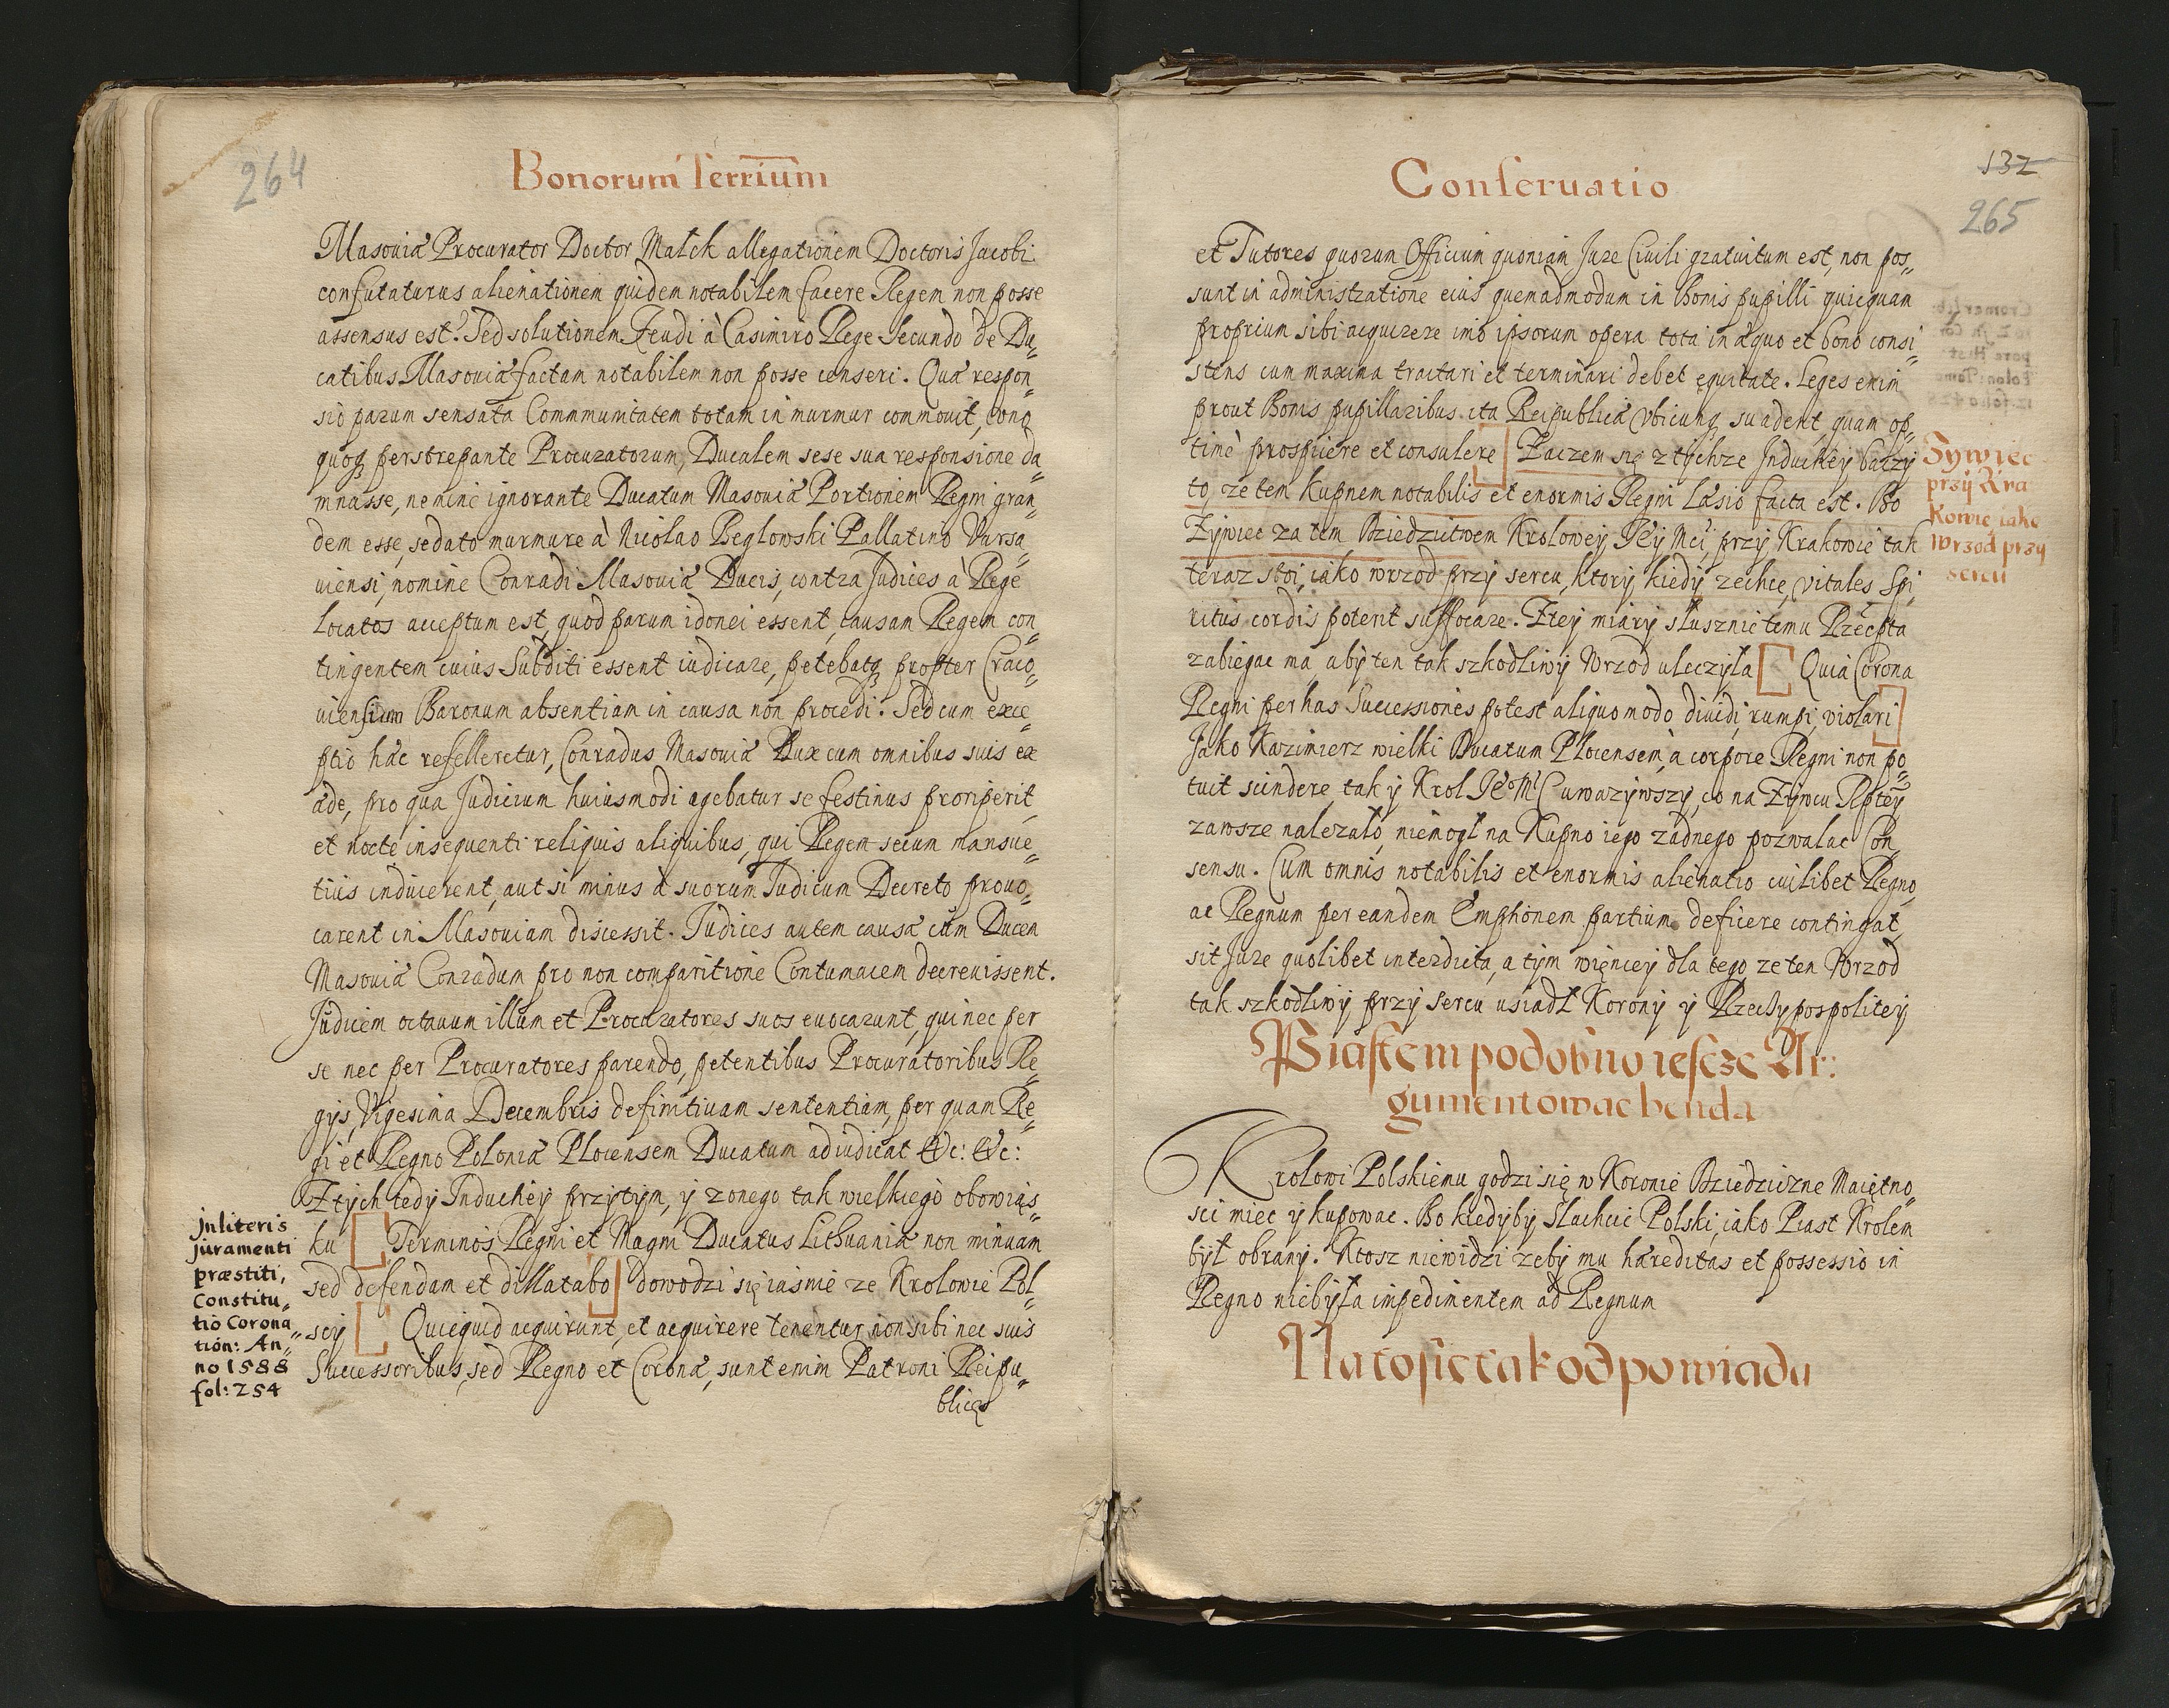 264
Bonorum Terrium
Masouiæ Procurator Doctor Malek allegationem Doctoris Jacobi
confutaturus alienationem quidem notabilem facere Regem non posse
assensus est. Sed solutionem Feudi à Casimiro Rege Secundo de Du„
catibus Masouiæ factam notabilem non posse censeri. Quæ respon„
sio parum sensata Commmunitatem totam in murmur commouit, cono
quoq perstrepante Procuratorum, Ducalem sese sua responsione da
mnasse, nemine ignorante Ducatum Masouiæ Portionem Regni gran„
dem esse, sedato murmure à Nicolao Peglowski Pallatino Varsa„
uiensi, nomine Conradi Masouiæ Ducis, contra Judices à Rege
locatos acceptum est, quod parum idonei essent, causam Regem con„
tingentem cuius Subditi essent iudicare, petebatq propter Craco„
uiensium Baronum absentiam in causa non procedi. Sed cum exce„
ptio hæc refelleretur, Conradus Masouiæ Dux cum omnibus suis ex
æde, pro qua Judicium huiusmodi agebatur se festinus proriperit
et nocte insequenti reliquis aliquibus, qui Regem secum mansue„
tius inducerent, aut si minus à suorum Judicum Decreto prouo„
carent in Masouiam discessit. Judices autem causæ cum Ducem
Masouiæ Conradum pro non comparitione Contumacem decreuissent.
Judicem octauum illum et Procuratores suos euocarunt, qui nec per
se nec per Procuratores parendo, petentibus Procuratoribus Re„
gijs, Vigesima Decembris definitiuam sententiam, per quam Re„
gi et Regno Poloniæ Plocensem Ducatum adiudicat &c: &c:
Z tych tedy Induckey przytym, y zonego tak wielkiego obowiąs„
ku [ Terminos Regni et Magni Ducatus Lithuaniæ non minuam
sed defendam et dillatabo ] dowodzi się iasnie ze Krolowie Pol„
scy [ Quicquid acquirunt, et acquirere tenentur, non sibi nec suis
Successoribus, sed Regno et Coronæ, sunt enim Patroni Reipu„
blicæ
Jn literis
juramenti
præstiti,
Constitu„
tio Corona„
tion: An„
no 1588
fol: 254
132
265
Conseruatio
et Tutores quorum Officium quoniam Jure Ciuili gratuitum est, non pos„
sunt in administratione eius quemadmodum in Bonis pupilli quicquam
proprium sibi acquirere imò ipsorum opera tota in æquo et bono consi„
stens cum maxima tractari et terminari debet equitate. Leges enim
prout Bonis pupillaribus ita Reipublicæ Vbicunq suadent, quam op„
timè prospicere et consulere ] Paczem się z tychze Induckey baczy
to, ze tem Kupnem notabilis et enormis Regni Læsio facta est. Bo
Zywiec za tem Dziedzictwem Krolowey Jey Mci, przy Krakowie tak
teraz stoi, iako wrzod przy sercu, ktory, kiedy zechce, Vitales Spi„
ritus cordis poterit suffocare. Z tey miary słusznie temu Rzecpta
zabiegac ma, aby ten tak szkodliwy Wrzod uleczyła [ Quia Corona
Regni per has Successiones potest aliquo modo diuidi, rumpi, violari ]
Jako Kazimierz wielki Ducatum Plocensem, à corpore Regni non po„
tuit scindere, tak y Krol Je° M° uwazywszy, co na Zywcu Rptey
zawsze nalezało, niemogł na Kupno iego zadnego pozwalac Con„
sensu. Cum omnis notabilis et enormis alienatio cuilibet Regno
ac Regnum per eandem Emptionem partium deficere contingat,
sit Jure quolibet interdicta, a tym więncey dla tego, ze ten Wrzod
tak szkodliwy przy sercu usiadł Korony y Rzeczypospolitey
Piastem podobno iescze Ar:
gumentowac benda
Krolowi Polskiemu godzi się w Koronie Dziedziczne Maiętno„
sci miec y kupowac. Bo kiedyby Slachcic Polski, iako Piast Krolem
był obrany. Ktosz niewidzi zeby mu hæreditas et possessio in
Regno niebyła impedimentem ad Regnum
Na to sie tak odpowiada
Sywiec
przy Kra
kowie iako
Wrzod przy
sercu